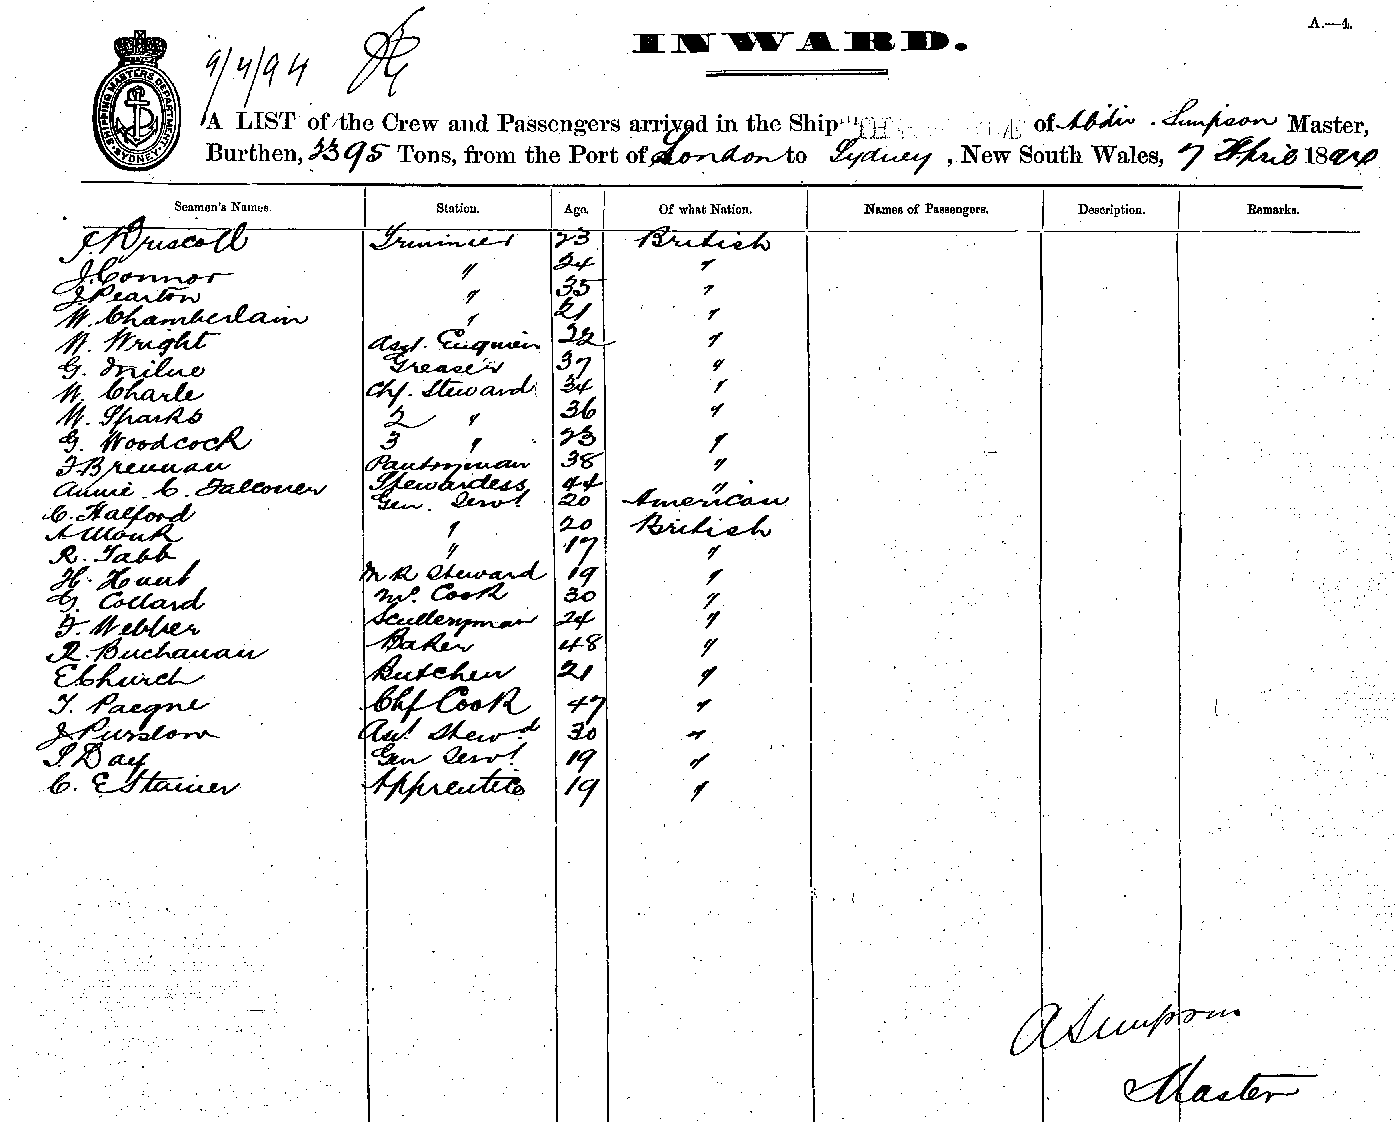 A.—4.
INWARD.
SHIPPING MASTERS DEPARTMENT SYDNEY
9/4/94
A LIST of the Crew and Passengers arrived in the Ship of Simpson Master,
Burthen, 3395 Tons, from the Port of London to Sydney, New South Wales, 7 April 1894
Seamen's Names. Station. Age. Of what Nation. Names of Passengers. Description. Remarks.
J. Driscoll Trimmer 23 British
J. Connor " 24 "
J. Pearton " 35 "
W. Chamberlain " 21 "
W. Wright Asst. Engineer 22 "
G. Milne Greaser 37 "
W. Charle Chf. Steward 34 "
W. Sparks 2 " 36 "
G. Woodcock 3 " 23 "
J Brennan Pantryman 38 "
Annie C. Falconer Stewardess 44 "
C. Halford Gen. Servt 20 American
A Monk " 20 British
R. Tabb " 17 "
H. Hunt M R Steward 19 "
G. Collard Cook 30 "
F. Webber Sculleryman 24 "
R. Buchanan Baker 48 "
E Church Butcher 21 "
T. Paegne Chf Cook 47 "
J Purslow Asst. Stewd 30 "
S Day Gen Servt 19 "
C. E Stainer Apprentice 19 "
A Simpson
Master